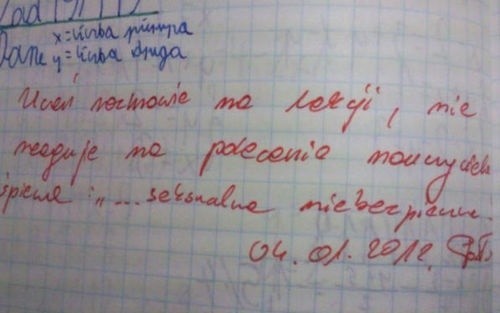 Zad
Dane x = liczba pierwsza
y = liczba druga
Uczeń rozmawia na lekcji, nie
reaguje na polecenia nauczyciela
śpiewa: „... seksualna niebezpieczna.
04.01.2012